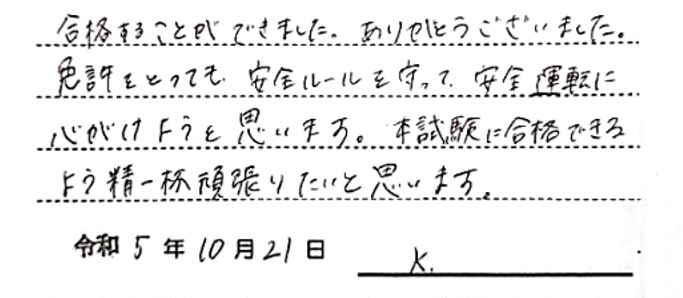 合格することができました。ありがとうございました。
免許をとっても、安全ルールを守って、安全運転に
心がけようと思います。本試験に合格できる
よう精一杯頑張りたいと思います。
令和5年10月21日 K.